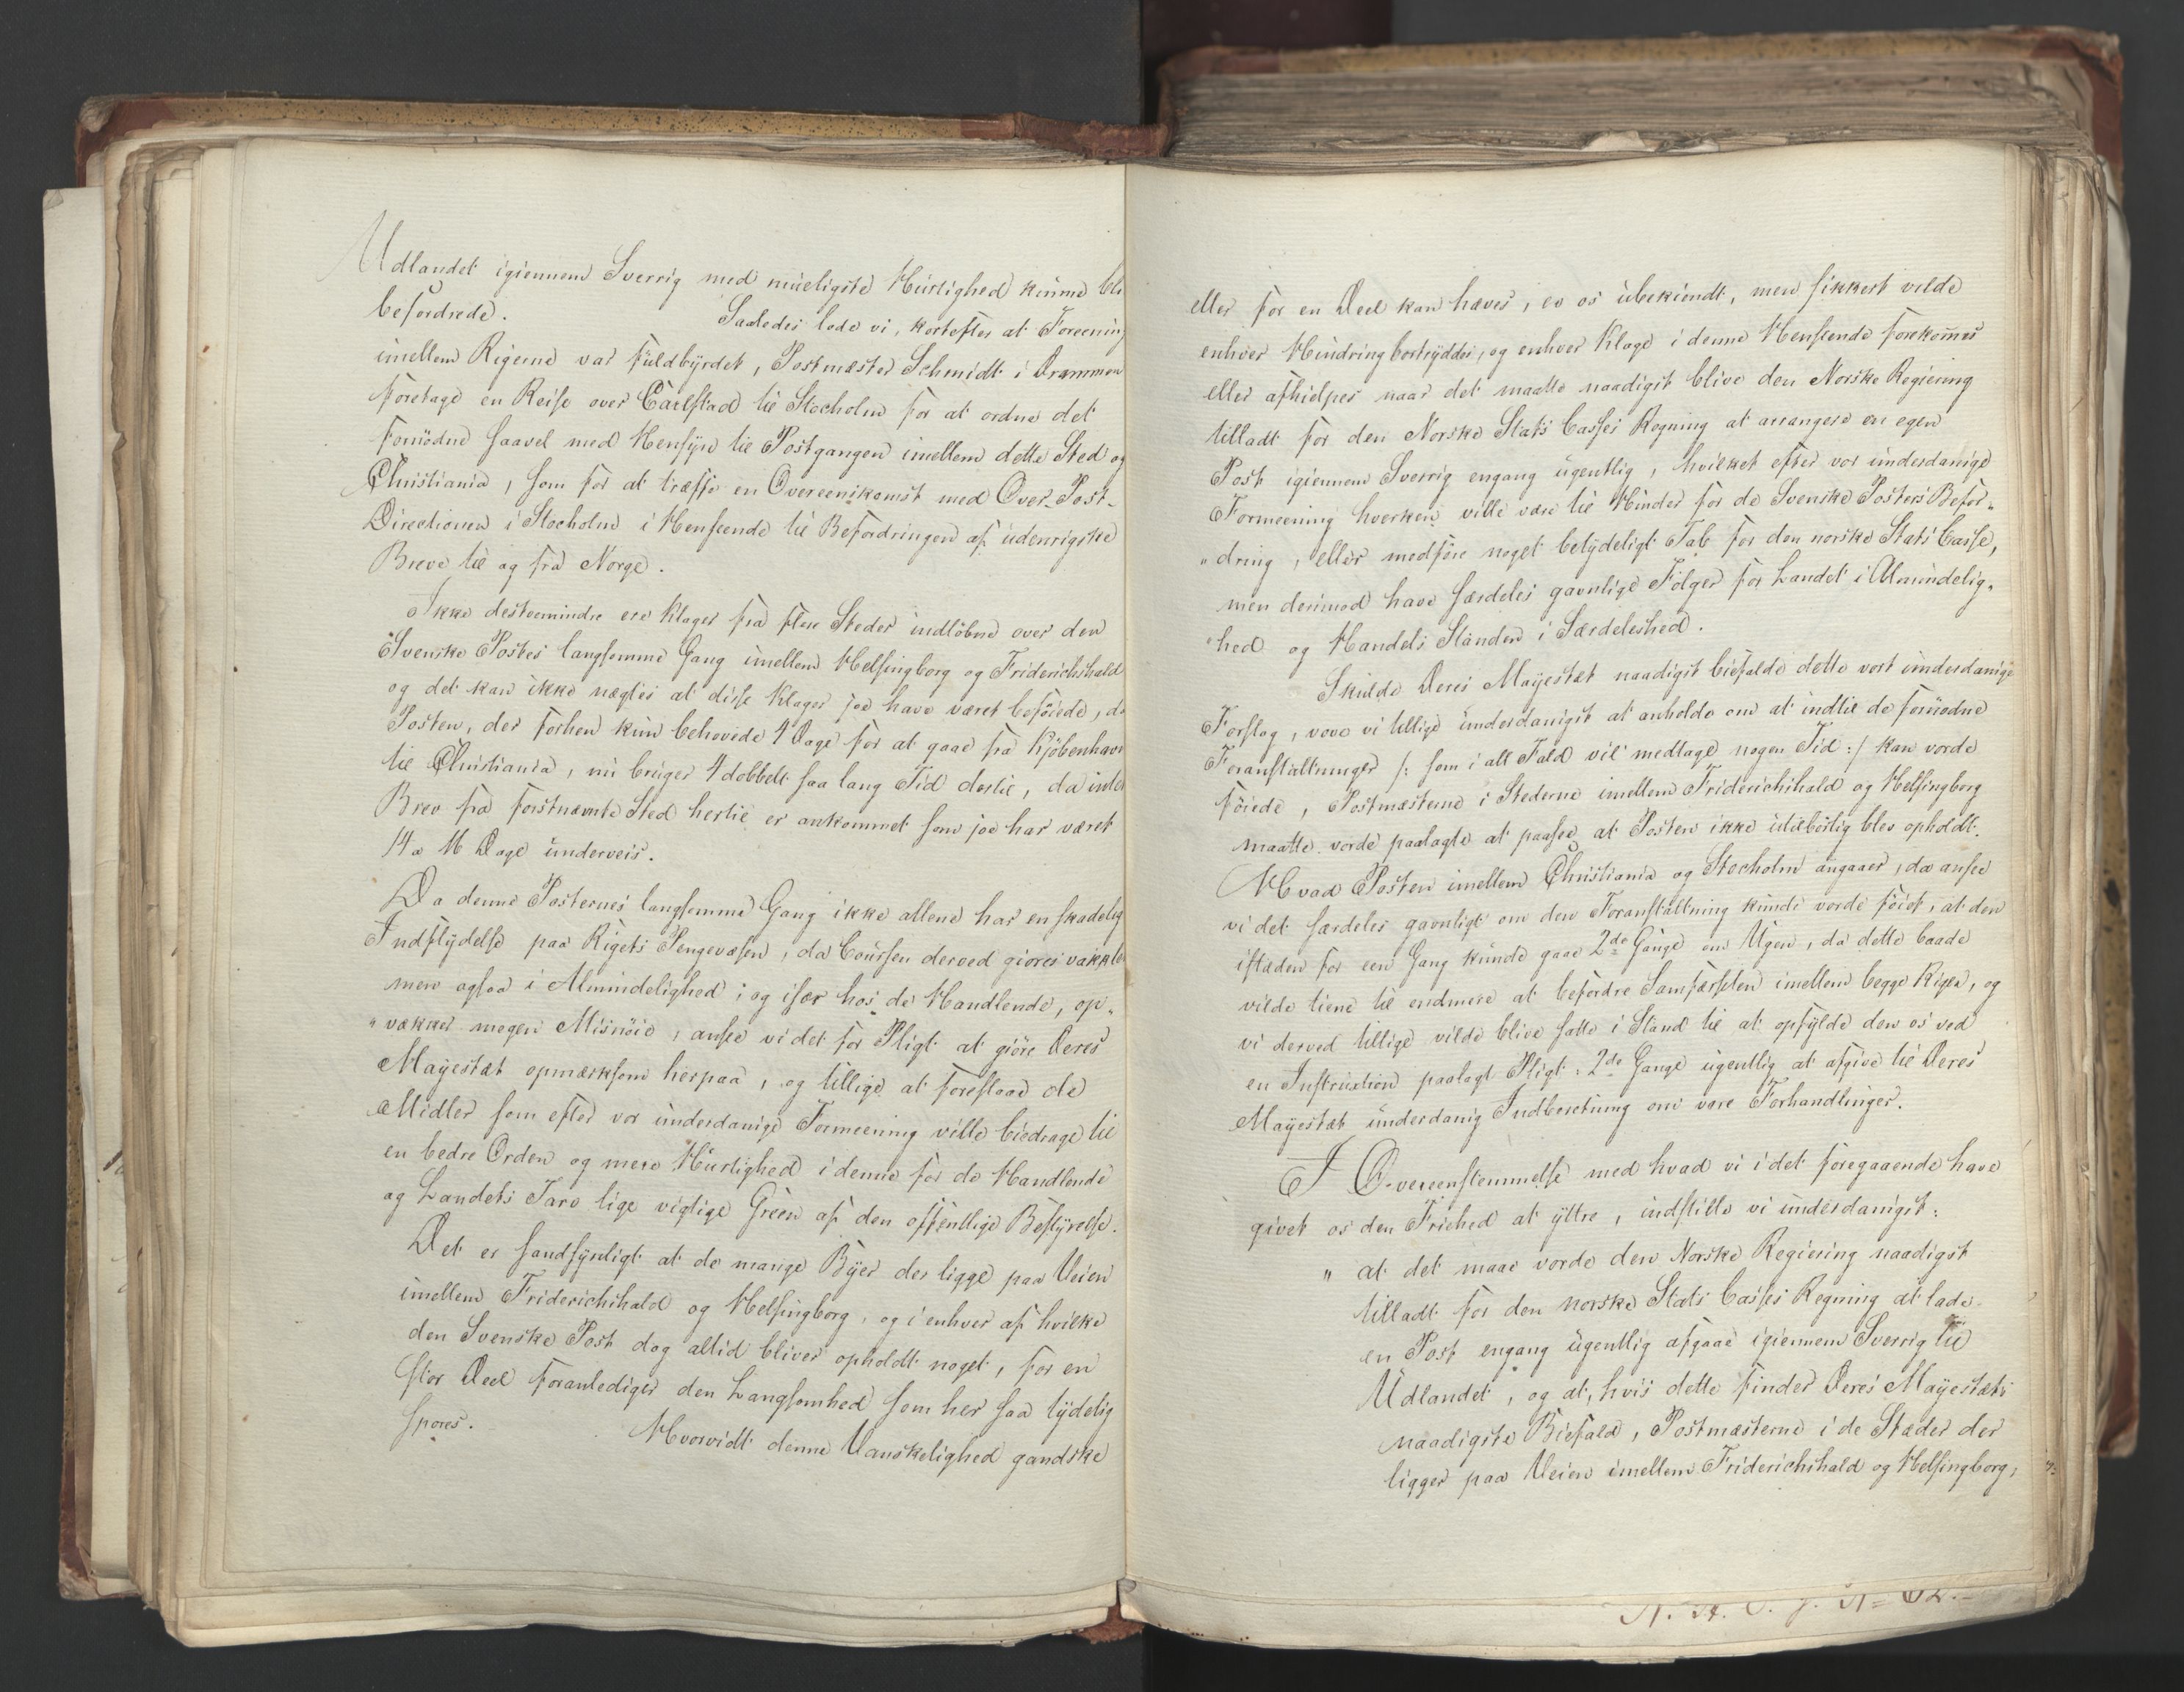 Udlandet igiennem Sverrig med mueligste Hurtighed kunne bli
befordrede. Saaledes lode vi, kortefter at Foreening
imellem Rigerne var fuldbyrdet, Postmester Schmidt i Drammen
foretage en Reise over Carlstad til Stocholm for at ordne det
fornødne saavel med Hensyn til Postgangen imellem dette Sted og
Christiania, som for at træffe en Overeenskomst med Over-Post-
Directionen i Stocholm i Henseende til Befordringen af udenrigske
Breve til og fra Norge.
Ikke destoemindre ere Klager fra flere Steder indløbne over den
Svenske Postes langsomme Gang imellem Helsingborg og Friderichshald
og det kan ikke nægtes at disse Klager joe have været beføiede, da
Posten, der forhen kun behøvede 4 Dage for at gaae fra Kjøbenhavn
til Christiania, nu bruger 4 dobbelt saa lang Tid dertil, da intet
Brev fra førstnævnte Sted hertil er ankommet som joe har været
14 a 16 Dage underveis.
Da denne Posternes langsomme Gang ikke allene har en skadelig
Indflydelse paa Rigets Pengevæsen, da Coursen derved giøres vakkle
men ogsaa i Almindelighed; og især hos de Handlende, op„
„vækker megen Misnøie, ansee vi det for Pligt at giøre Deres
Mayestæt opmærksom herpaa, og tillige at foreslaae de
Midler som efter vor underdanige Formeening ville biedrage til
en bedre Orden og mere Hurtighed i denne for de Handlende
og Landets Tarv lige vigtige Green af den offentlige Bestyrelse.
Det er sandsynligt at de mange Byer der ligge paa Veien
imellem Friderichshald og Helsingborg, og i enhver af hvilke
den Svenske Post dog altid bliver opholdt noget, for en
stor Deel foranlediger den Langsomhed som her saa tydelig
spores. Hvorvidt denne Vanskelighed gandske
eller for en Deel kan hæves, er os ubekiendt, men sikkert vilde
enhver Hindring bortryddes, og enhver Klage i denne Henseende forekommes
eller afhielpes naar det maatte naadigst blive den Norske Regiering
tilladt for den Norske Stats Casses Regning at arrangere en egen
Post igiennem Sverrig engang ugentlig, hvilket efter vor underdanige
Formeening hverken ville være til Hinder for de Svenske Posters Befor„
„dring, eller medføre noget betydeligt Tab for den norske Stats Casse,
men derimod have særdeles gavnlige Følger for Landet i Almindelig„
„hed og Handels Standen i Særdeleshed.
Skulde Deres Mayestæt naadigst biefalde dette vort underdanige
Forslag, vove vi tillige underdanigst at anholde om at indtil de fornødne
Foranstaltninger /: som i alt Fald vil medtage nogen Tid :/ kan vorde
føiede, Postmesterne i Stederne imellem Friderichshald og Helsingborg
maatte vorde paalagte at paasee at Posten ikke utilbørlig blev opholdt.
Hvad Posten imellem Christiania og Stocholm angaaer, da ansee
vi det særdeles gavnligt om den Foranstaltning kunde vorde føiet, at den
istæden for een Gang kunde gaae 2de Gange om Ugen, da dette baade
vilde tiene til endmere at befordre Samfærselen imellem begge Riger, og
vi derved tillige vilde blive satte i Stand til at opfylde den os ved
en Instruxtion paalagt Pligt: 2de Gange ugentlig at afgive til Deres
Mayestæt underdanig Indberetning om vore Forhandlinger.
I Overeenstemmelse med hvad vi i det foregaaende have
givet os den Friehed at yttre, indstille vi underdanigst:
„ at det maae vorde den Norske Regiering naadigst
tilladt for den norske Stats Casses Regning at lade
en Post engang ugentlig afgaae igiennem Sverrig til
Udlandet, og at, hvis dette finder Deres Mayestæts
naadigste Biefald, Postmesterne i de Stæder der
ligger paa Veien imellem Friderichshald og Helsingborg,